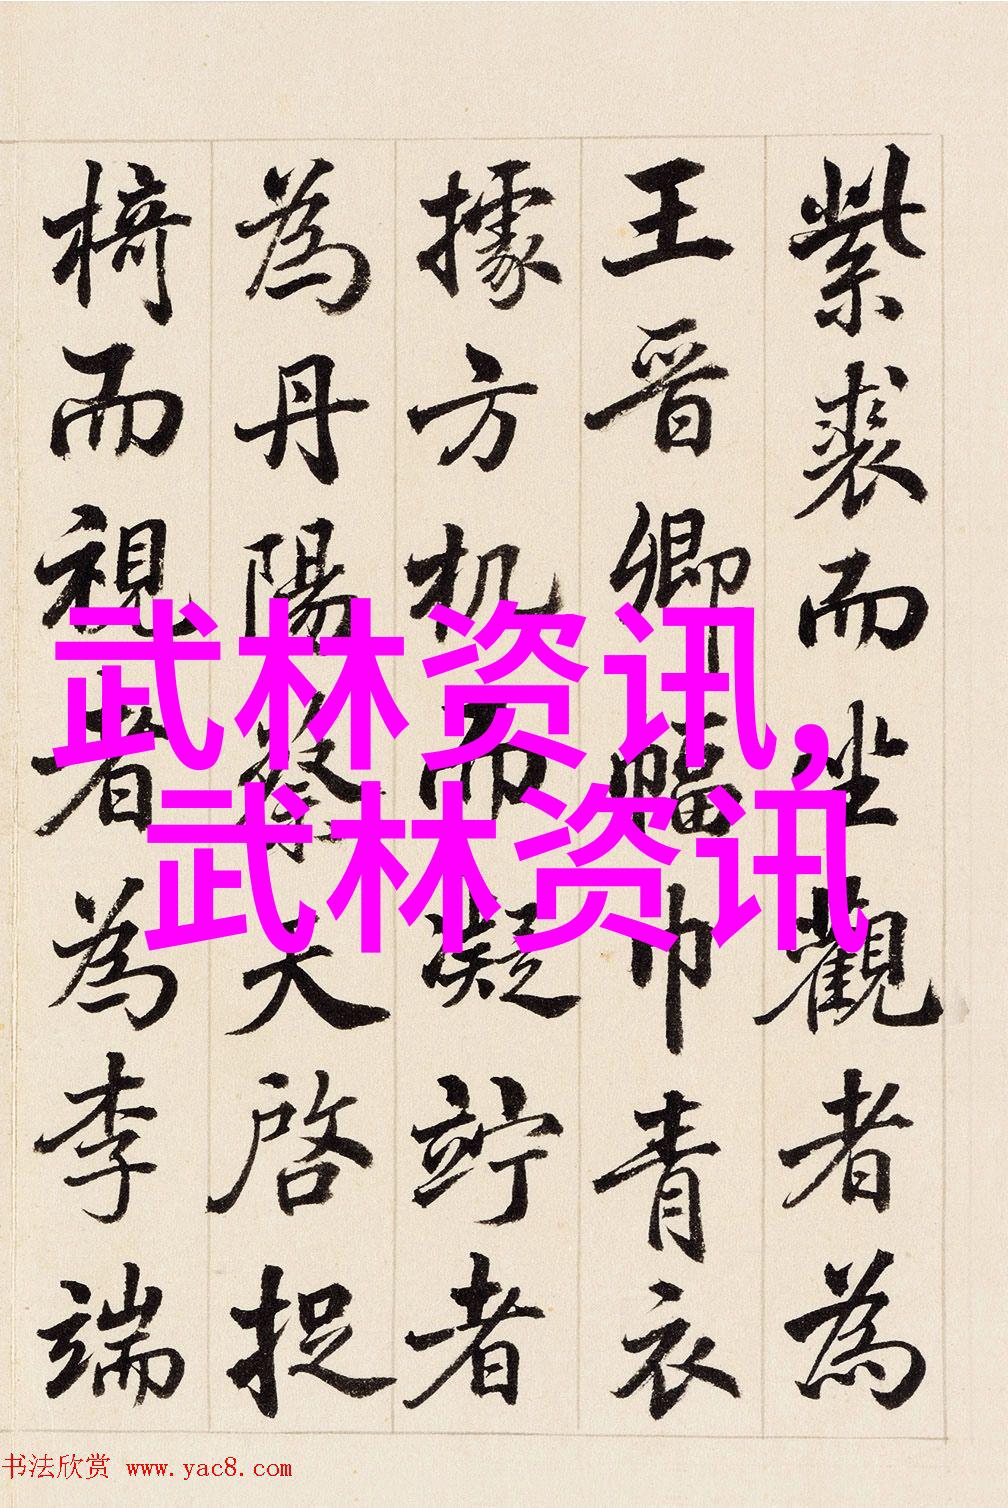 紫裘而坐觀者為
王晉卿幅巾青衣
據方机而凝竚者
為丹陽蔡天啓捉
椅而視者為李端
武林资讯,
武林资讯
书法欣赏 www.yac8.com